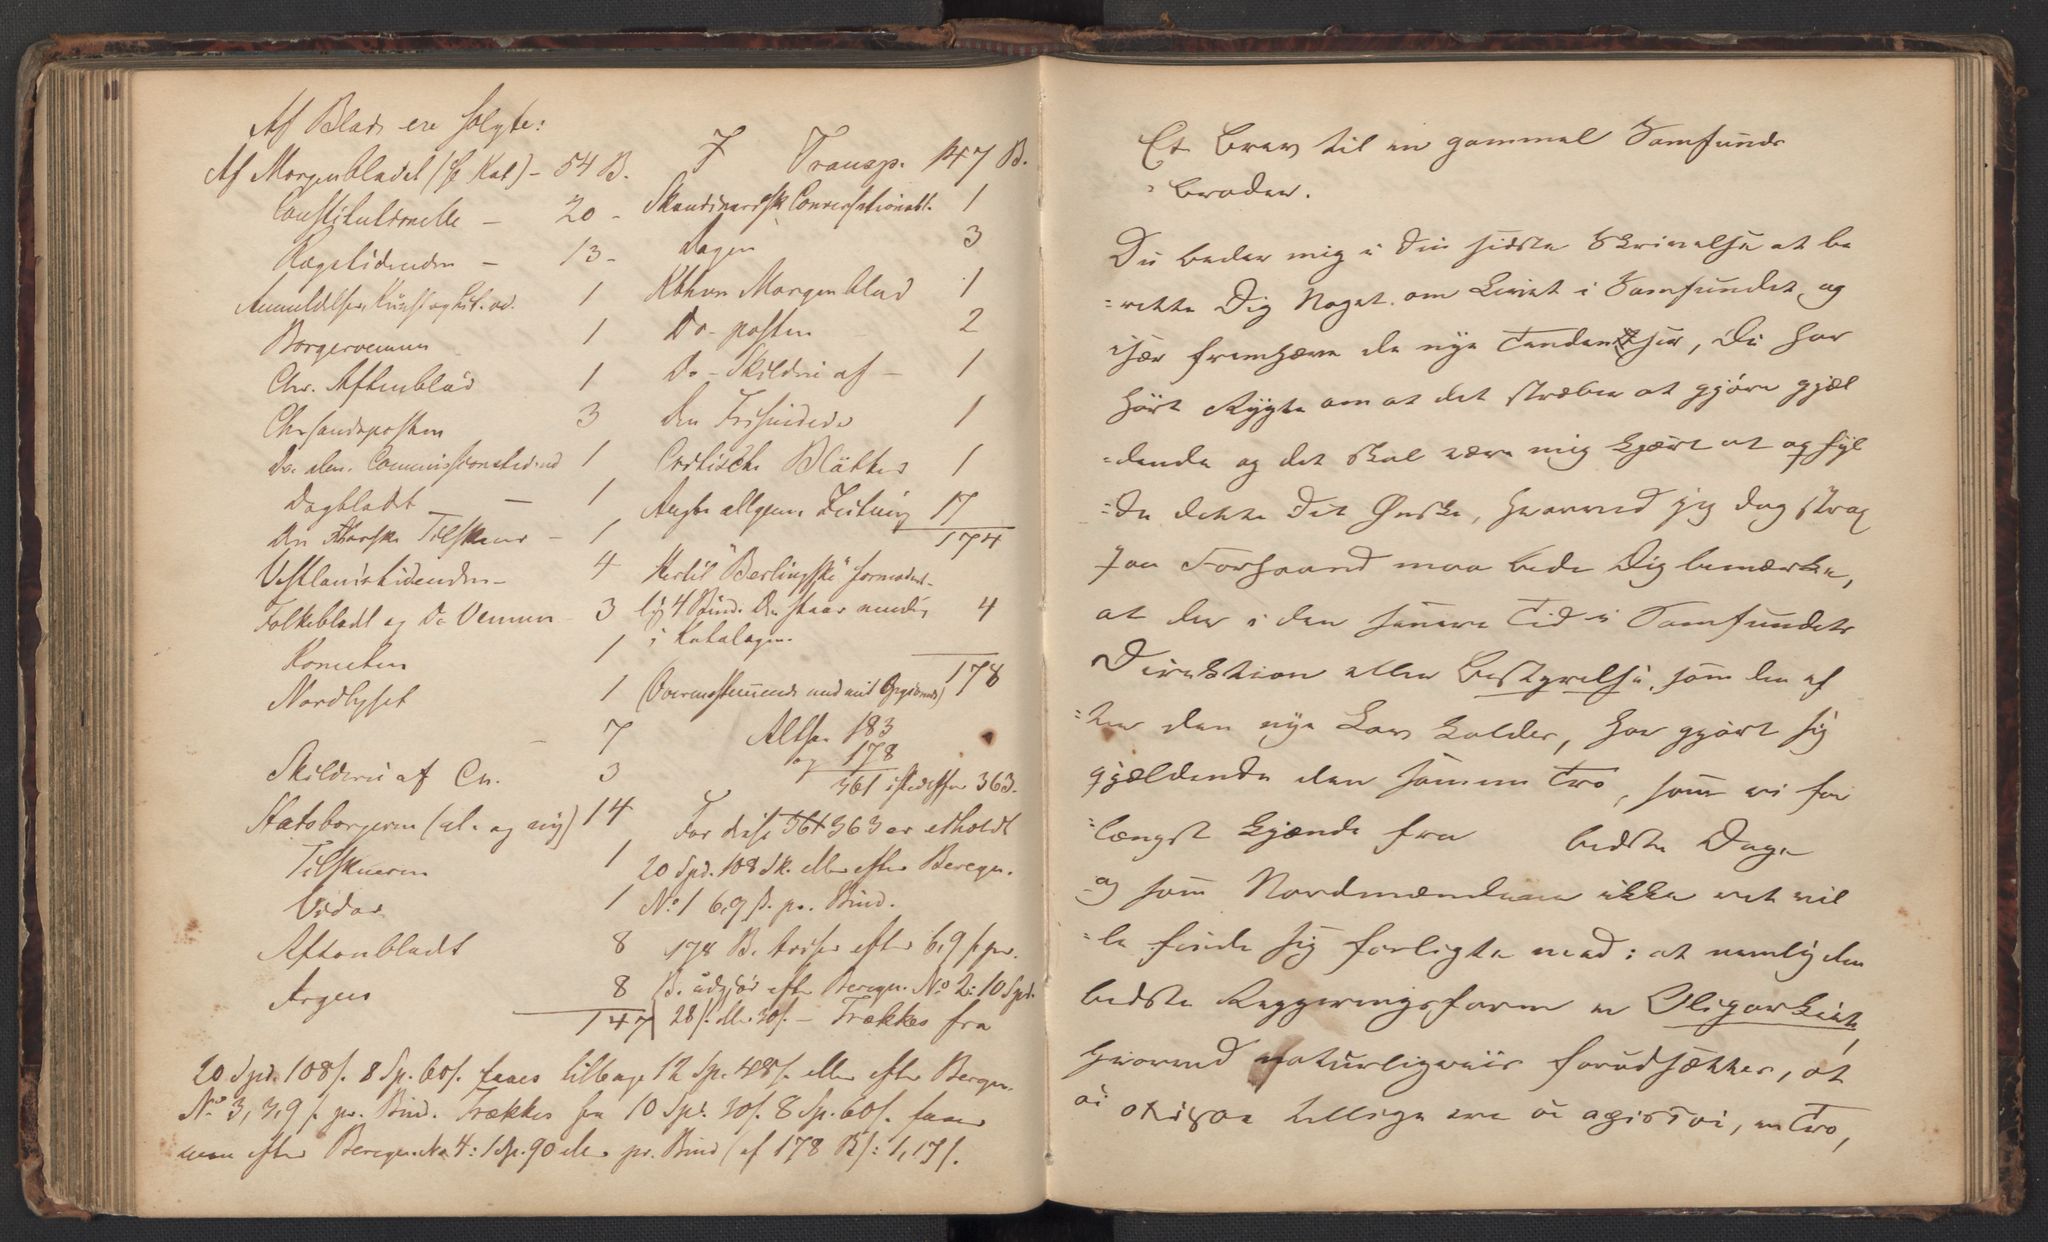 Af Blade ere solgte:
Af Morgenbladet (fr Kat) - 54 B.
Constitutionelle - 20 -
Rigstidenden - 13 -
Anmeldelser, Kunst og Lit. 1
Borgervennen 1
Chr. Aftenblad 1
Chrsandsposten 3
Do. alm. Commissionstidend 1
Dagbladet - 1
Den Norske Tilskuer - 1
Vestlandstidenden - 4
Folkebladet og Do Vennen 3
Kometen 1
Nordlyset 1
- 7
Skilderie af Chr. 3
Statsborgeren (æl. og ny) 14
Tilskueren 1
Vidar 1
Aftonbladet 8
Argus 8
147
Transp. 147 B.
Skandinavisk Conversationsbl. 1
Dagen 3
Kbhvns Morgenblad 1
Do - posten 2
Do - Skilderi af - 1
Den Frisindede 1
Critische Blätter 1
Augsb. allgem. Zeitung 17
174
Hertil "Berlingske" formodent-
lig 4 Bind. Der staar nemlig 4
i Katalogen.
178
(Overensstemmende med mit Opgivende)
Altsaa 183
og 178
361 istedetfor 363.
For disse 361 363 er erholdt
20 Spd. 108 Sk. eller efter Beregn.
No 1 6,9 ß. pr. Bind.
178 B. trykt efter 6,9 ß pr.
B. udgjør efter Beregn. No 2: 10 Spd.
28 ß. eller 30 ß. - Trækkes fra
20 Spd. 108 ß. 8 Sp. 60 ß. faaes tilbage 12 Sp. 48 ß. eller efter Beregn.
No 3, 3,9 ß pr. Bind. Trækkes fra 10 Spd. 30 ß. 8 Sp. 60 ß. faaer
man efter Beregn. No 4: 1 Sp. 90 eller pr. Bind (af 178 B): 1,17 ß.
Et Brev til en gammel Samfunds
= broder.
Du beder mig i Din sidste Skrivelse at be
= rette Dig Noget om Livet i Samfundet og
især fremhæve de nye Tendentser, Du har
hørt Rygte om at det stræber at gjøre gjæl
= dende og det skal være mig kjært at opfyl
= de dette Dit Ønske, hvorved jeg dog strax
paa Forhaand maa bede Dig bemærke,
at der i den senere Tid i Samfundets
Direktion eller Bestyrelse, som den ef
= ter den nye Lov kaldes, har gjort sig
gjældende den samme Tro, som vi for
= længst kjende fra bedste Dage
og som Nordmændene ikke ret vil
= le finde sig forligte med: at nemlig den
bedste Regjeringsform er Oligarkiet,
hvorved naturligviis forudsættes, at
οἱ ὀλίγοι tillige ere οἱ ἄριστοι, en Tro,